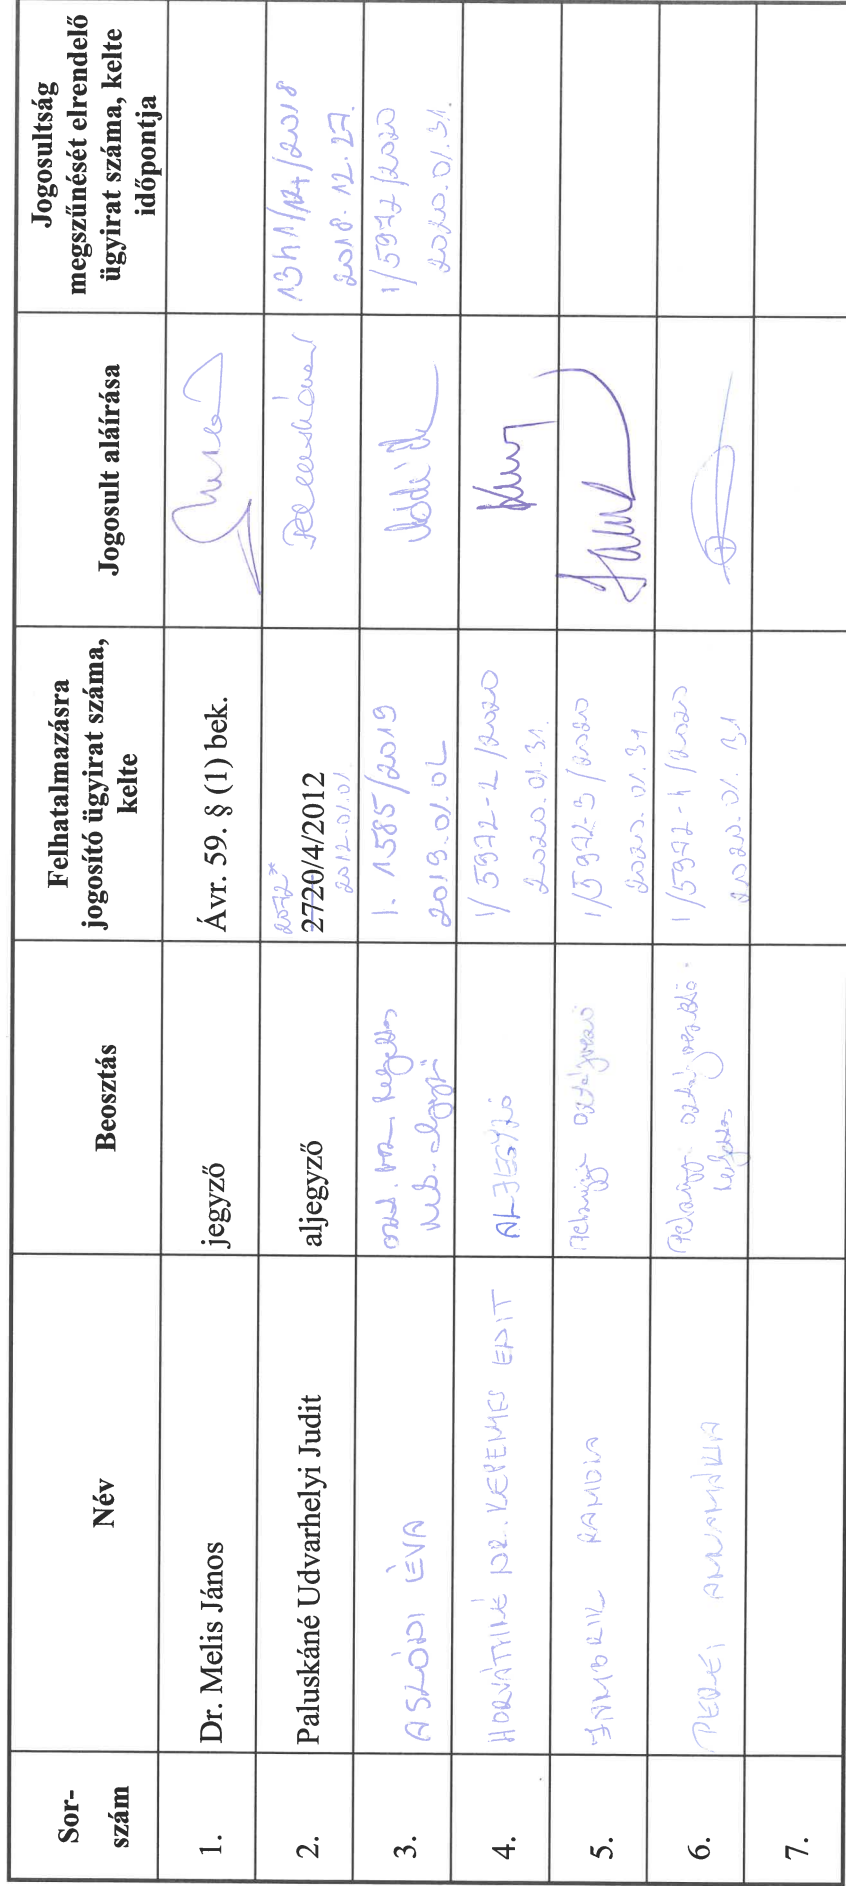 Sor-
szám
Név
Beosztás
Felhatalmazásra
jogosító ügyirat száma,
kelte
Jogosult aláírása
Jogosultság
megszűnését elrendelő
ügyirat száma, kelte
időpontja
1.
Dr. Melis János
jegyző
Ávr. 59. § (1) bek.
2.
Paluskáné Udvarhelyi Judit
aljegyző
2720/4/2012
2012.01.01
2018.12.27.
3.
ASZÓDI ÉVA
1. 1585/2019
2019.01.02
1/5972/2020
2020.01.31.
4.
HORVÁTHNÉ DR. KEPENYES EDIT
ALJEGYZŐ
1/5972-2/2020
2020.01.31.
5.
osztályvezető
1/5972-3/2020
2020.01.31
6.
PEREI ANNAMÁRIA
1/5972-4/2020
2020.01.31
7.